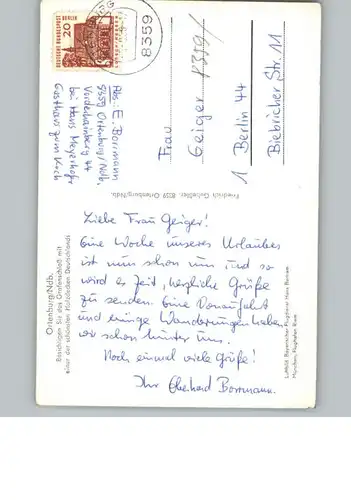 DEUTSCHE BUNDESPOST BERLIN
20
8359
Abs.: E. Borrmann
8359 Ortenburg/Ndb.
Vorderhainberg 44
bei Hans Meyerhofer
Gasthaus zum Koch
Frau
Geiger
8359/
1 Berlin 44
Biebricher Str. 11
Friedrich Gebeßler, 8229 Ortenburg/Ndb.
Liebe Frau Geiger!
Eine Woche unseres Urlaubes
ist nun schon um und so
wird es Zeit, herzliche Grüße
zu senden. Eine Donaufahrt
und einige Wanderungen haben
wir schon hinter uns.
Noch einmal viele Grüße!
Ihr Eberhard Borrmann.
Ortenburg/Ndb.
Besichtigen Sie das Grafenschloß mit
einer der schönsten Holzdecken Deutschlands
Luftbild: Bayerischer Flugdienst Hans Bertram
München, Flughafen Riem